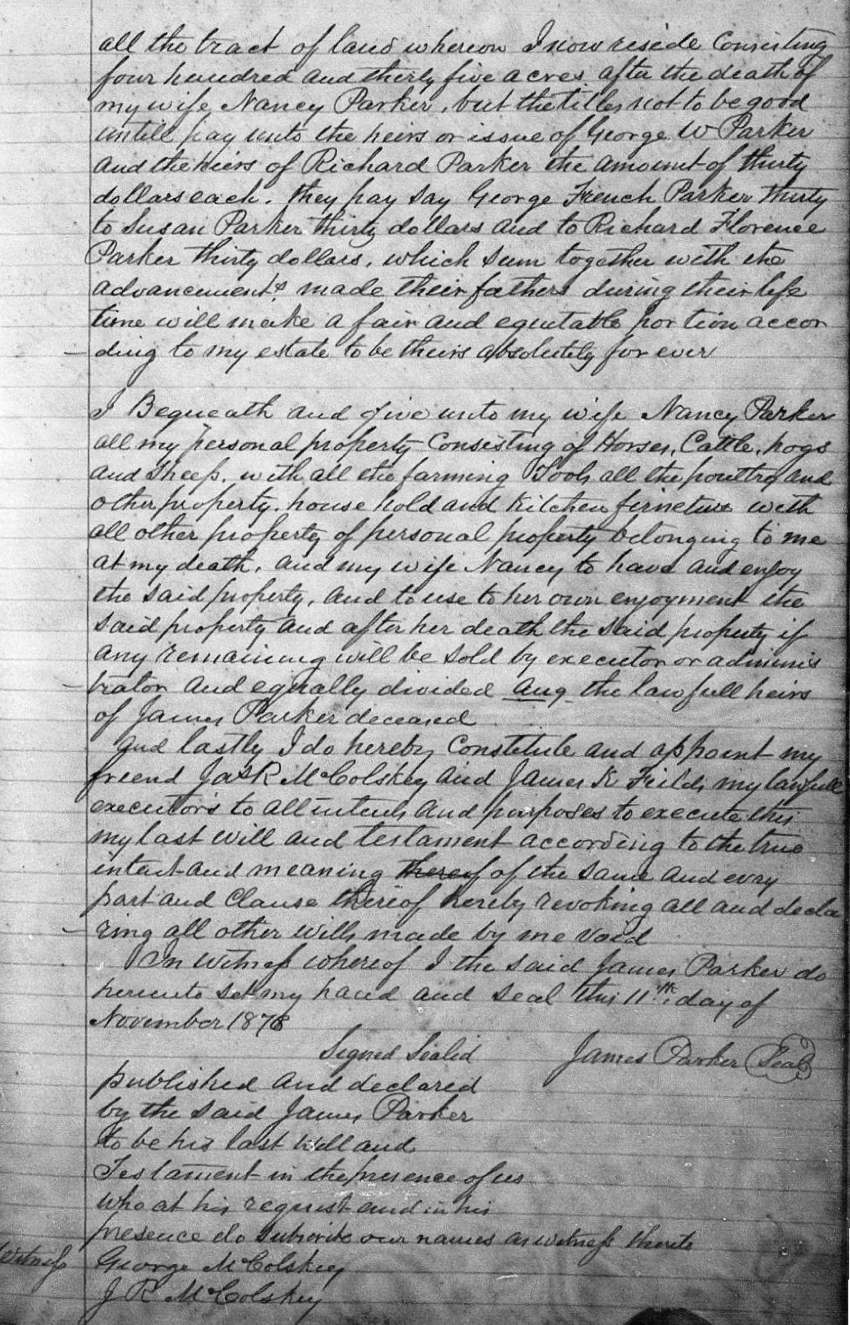 all the tract of land whereon I now reside Consisting
four hundred and thirty five acres after the death of
my wife Nancy Parker, but the titles not to be good
untill pay unto the heirs or issue of George W Parker
and the heirs of Richard Parker the amount of thirty
dollars each. they pay say George French Parker thirty
to Susan Parker thirty dollars and to Richard Florence
Parker thirty dollars, which sum together with the
advancements made their fathers during their life
time will make a fair and equitable portion accor
ding to my estate to be theirs absolutely for ever
I Bequeath and give unto my wife Nancy Parker
all my personal property Consisting of Horses, Cattle, hogs
and Sheep, with all the farming Tools all the poultry and
other property. house hold and Kitchen firneture with
all other property of personal property belonging to me
at my death, and my wife Nancy to have and enjoy
the said property, and to use to her own enjoyment the
said property and after her death the said property if
any remaining will be sold by executor or adminis
trator and equally divided aug the lawfull heirs
of James Parker deceased
and lastly I do hereby Constitute and appoint my
friend Jas R McColskey and James K Fields my lawfull
executors to all intents and purposes to execute this
my last will and testament according to the true
intent and meaning thereof of the same and evry
part and Clause thereof hereby revoking all and decla
ring all other wills made by me void
In Witness whereof I the said James Parker do
hereunto set my hand and seal this 11th day of
November 1878
Signed Sealed James Parker Seal
published and declared
by the said James Parker
to be his last Will and
Testament in the presence of us
who at his request and in his
presence do subscribe our names as witness thereto
Witness George McColskey
J R McColskey